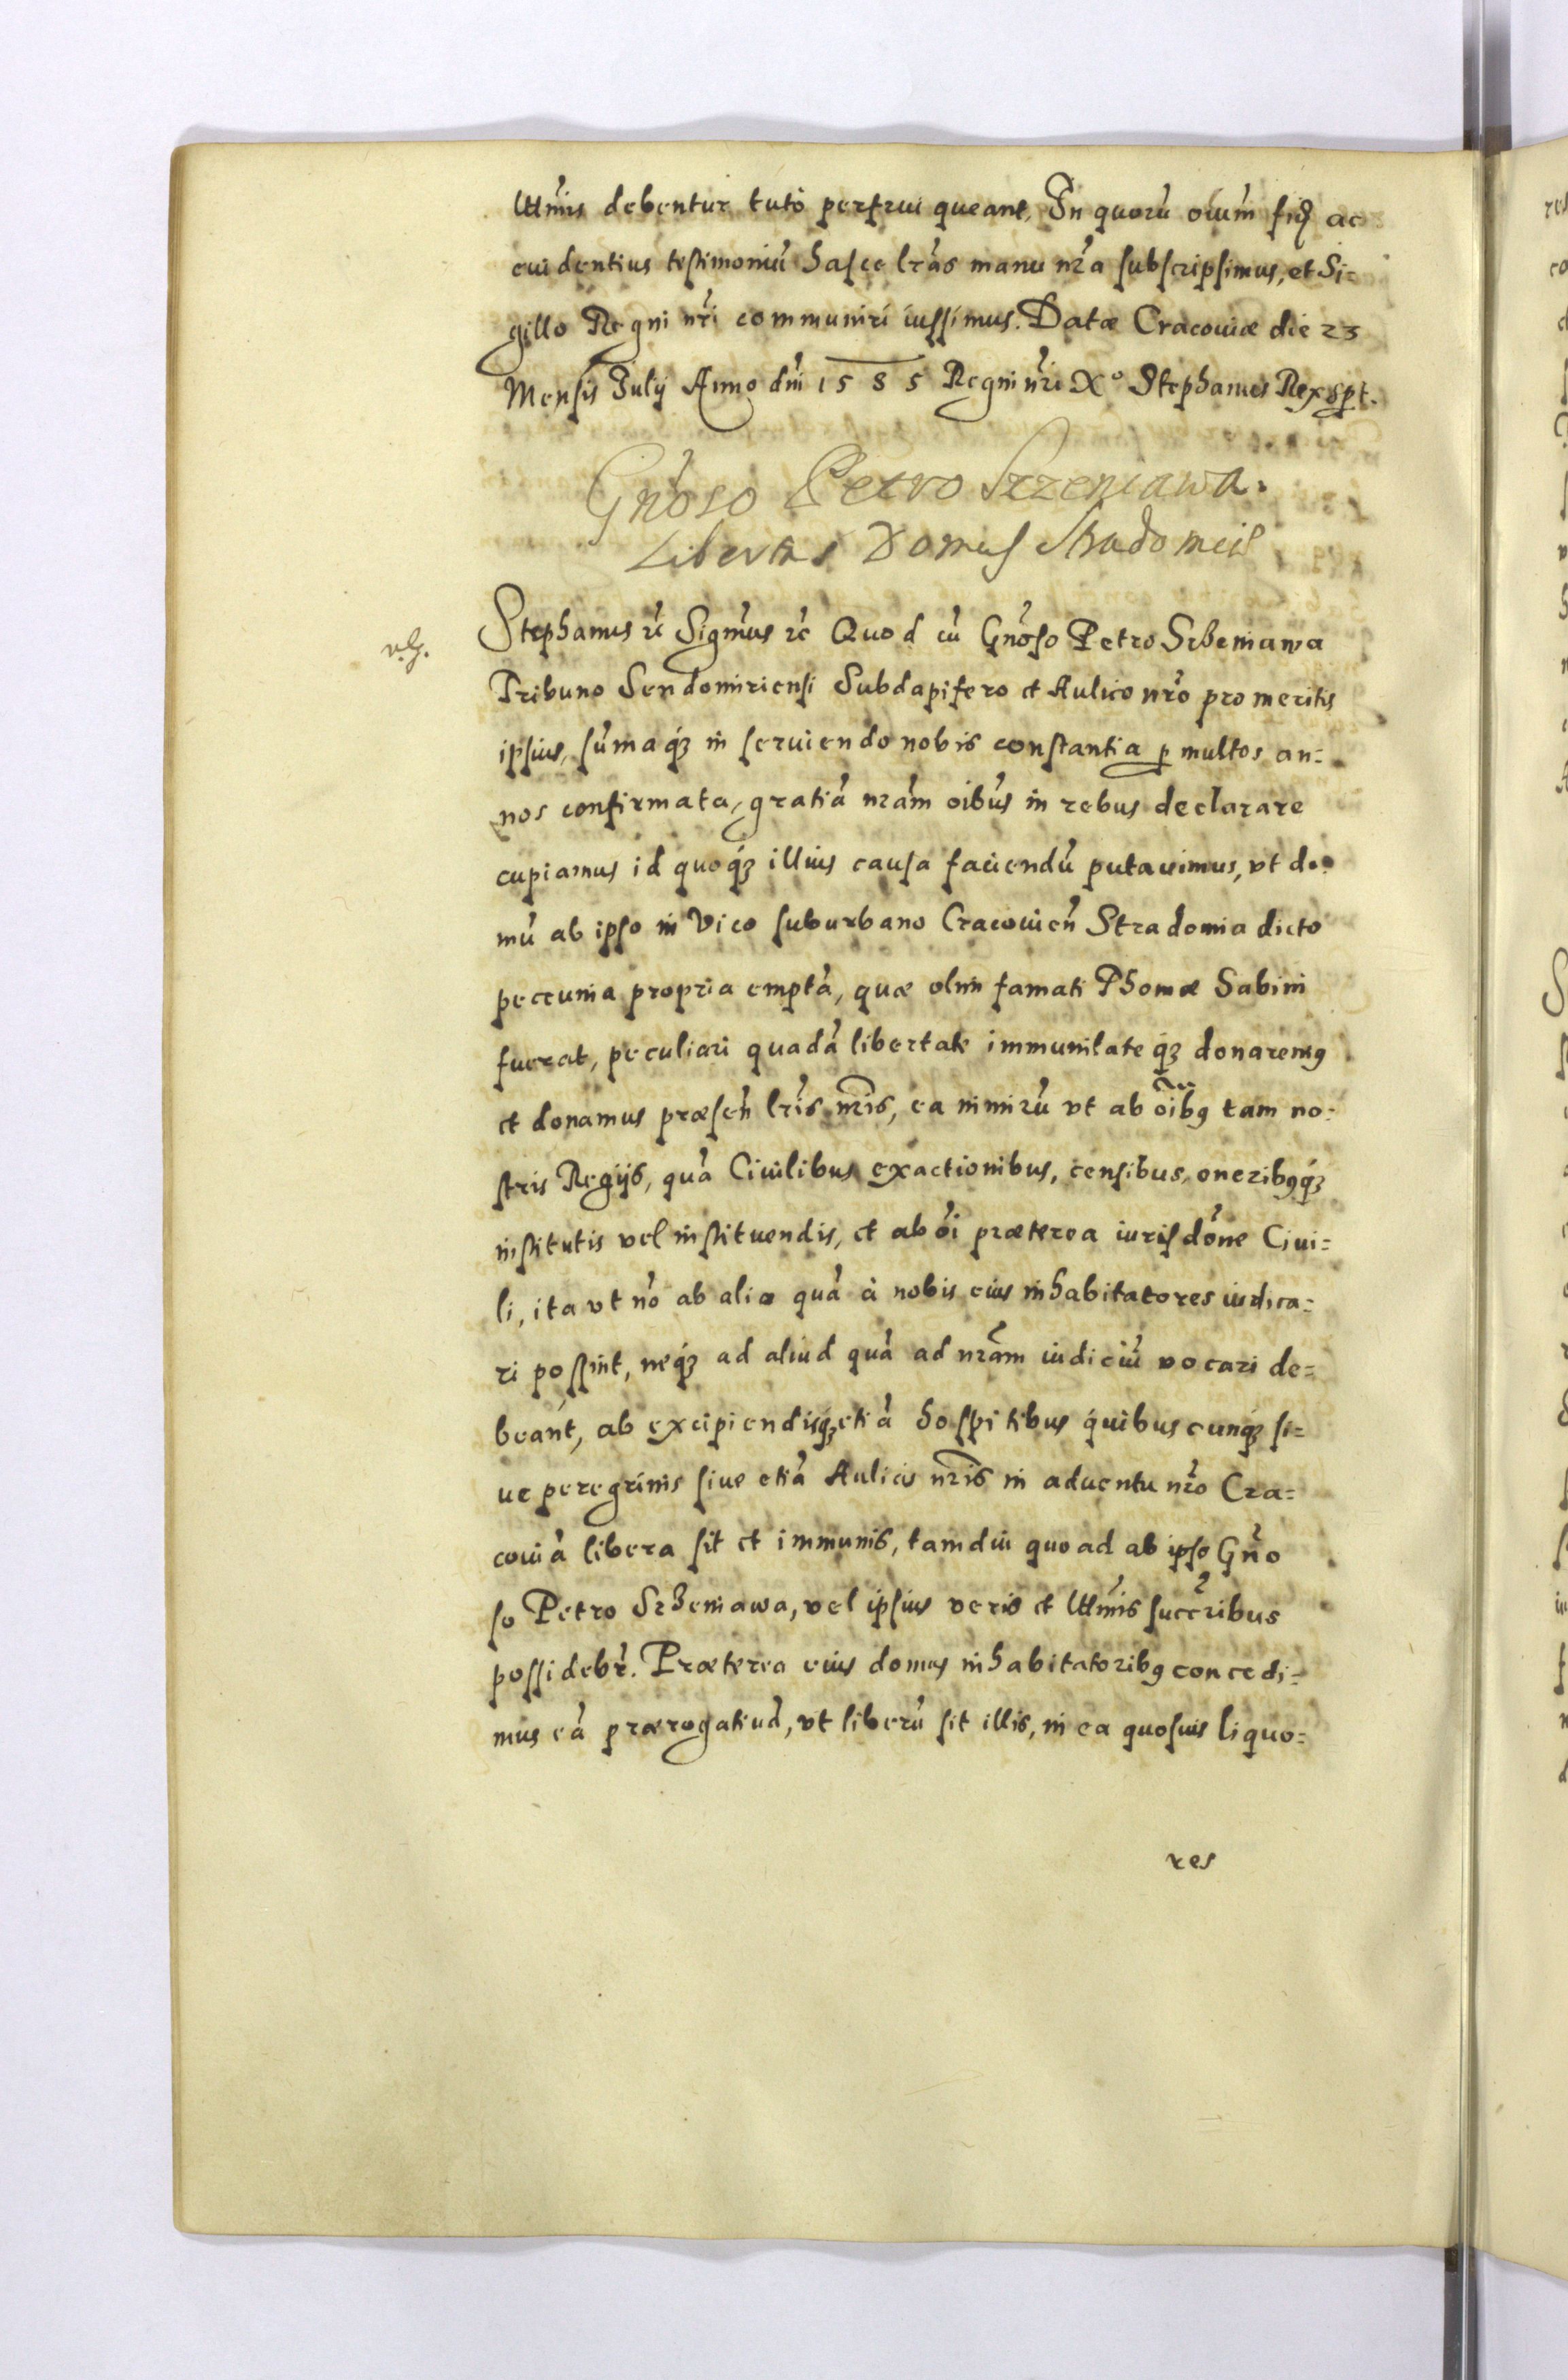 lltmis debentur tuto perfrui queant. In quorũ oium fidẽ ac
euidentius testimoniũ hasce lras manu nra subscripsimus, et Si=
gillo Regni nri communiri iussimus. Datæ Cracouiæ die 23
Mensis Iulij Anno dni 1585 Regni nri Xº Stephanus Rex spt.
Gnoso Petro Srzeniawa.
Libertas Domus Stradomiẽ
Stephanus rc Sigmus rc Quod cũ Gnoso Petro Srzeniawa
Tribuno Sendomiriensi Subdapifero et Aulico nro pro meritis
ipsius, sũmaq3 in seruiendo nobis constantia p multos an=
nos confirmata, gratiã nram oibus in rebus declarare
cupiamus id quoq3 illius causa faciendũ putauimus, vt do
mũ ab ipso in Vico suburbano Cracouien Stradomia dicto
peccunia propria emptã, quæ olim famati Thomæ Sabini
fuerat, peculiari quadã libertate immunitate q3 donaremus
et donamus præsen lris nris, ea nimirũ vt ab oibus tam no=
stris Regijs, quã Ciuilibus exactionibus, censibus, oneribusq3
institutis vel instituendis, et ab oi præterea iurisdone Ciui=
li, ita vt nõ ab alio quã à nobis eius inhabitatores iudica=
ri possint, neq3 ad aliud quã ad nram iudiciũ vocari de=
beant, ab excipiendisq3 etiã hospitibus quibuscunq3 si=
ue peregrinis siue etiã Aulicis nris in aduentu nro Cra=
couiã libera sit et immunis, tamdiu quoad ab ipso Gno
so Petro Srzeniawa, vel ipsius veris et lltmis succribus
possidebr. Præterea eius domus inhabitatoribus concedi=
mus eã prærogatiuã, vt liberũ sit illis, in ea quosuis liquo=
res